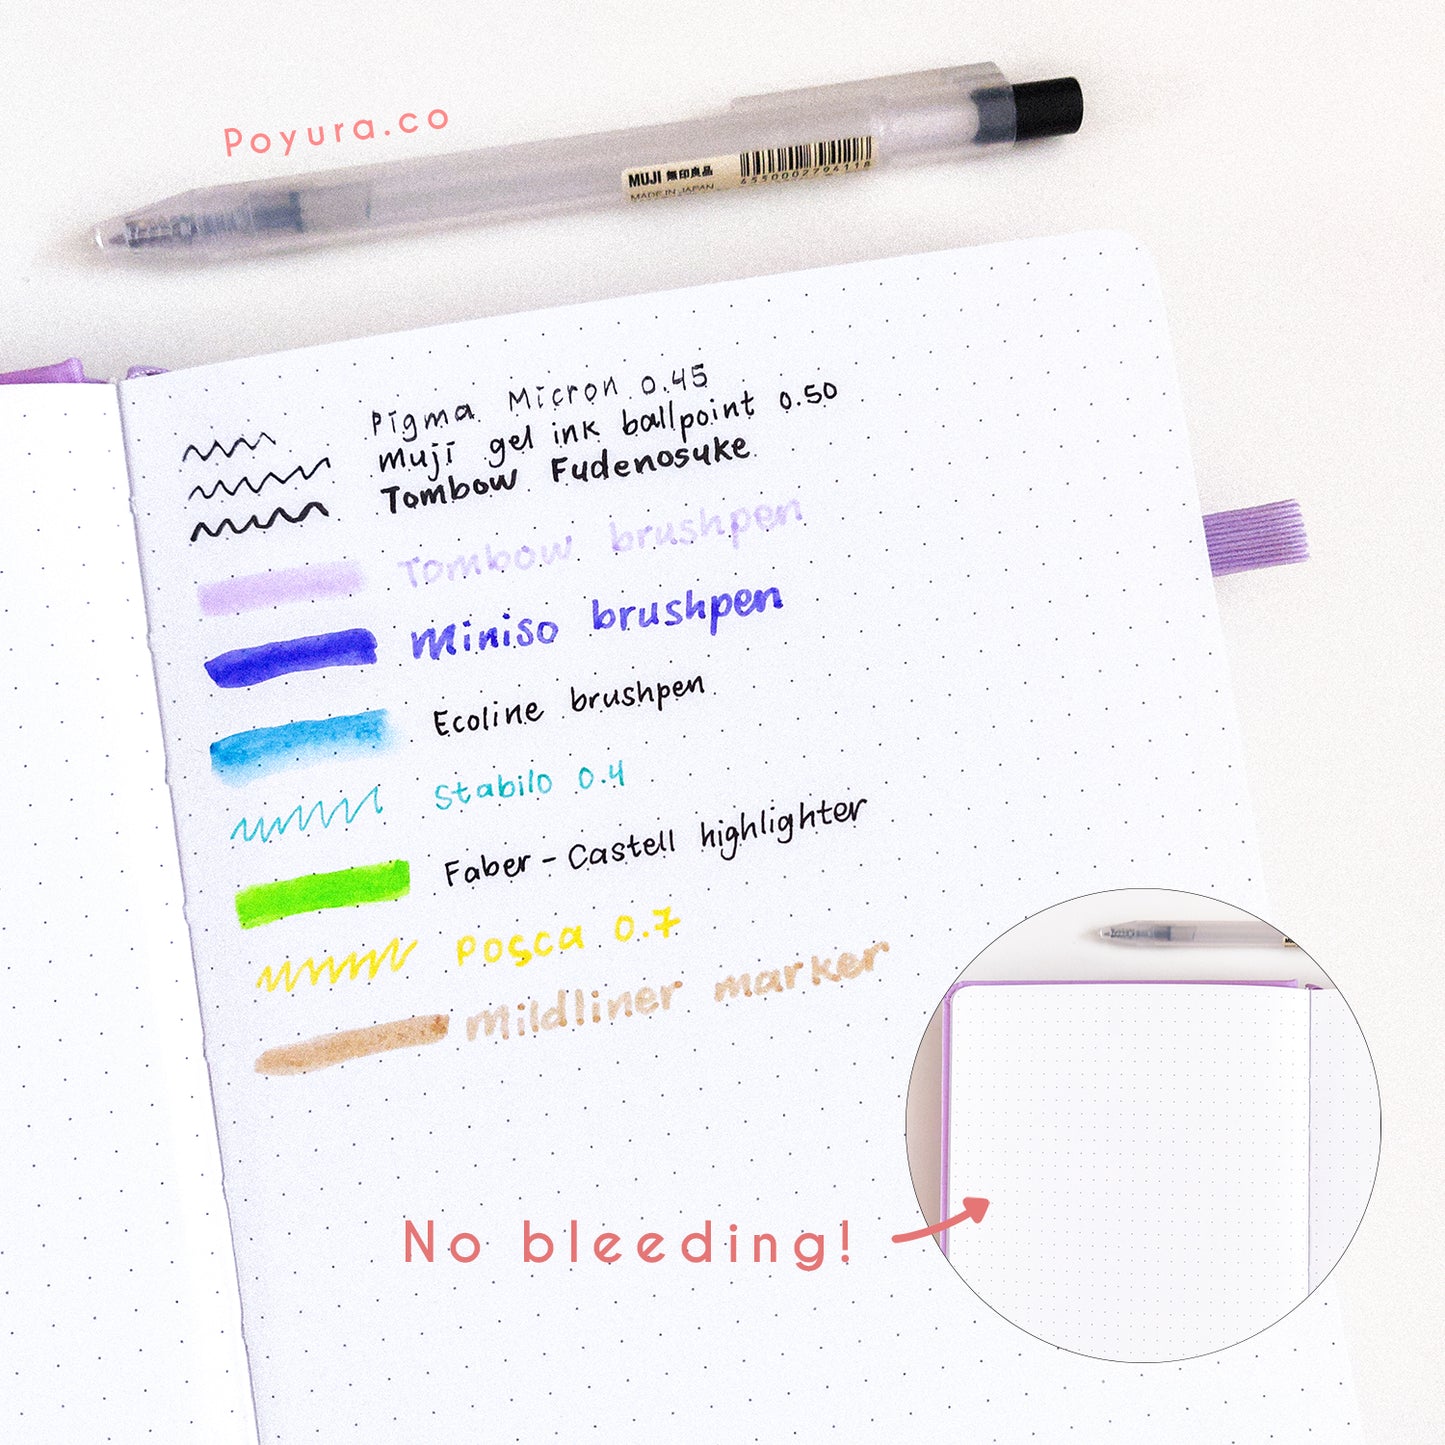 Poyura.co
MUJI 無印良品
MADE IN JAPAN
4550002794118
Pigma Micron 0.45
Muji gel ink ballpoint 0.50
Tombow Fudenosuke
Tombow brushpen
Miniso brushpen
Ecoline brushpen
Stabilo 0.4
Faber-Castell highlighter
Posca 0.7
Mildliner marker
No bleeding!